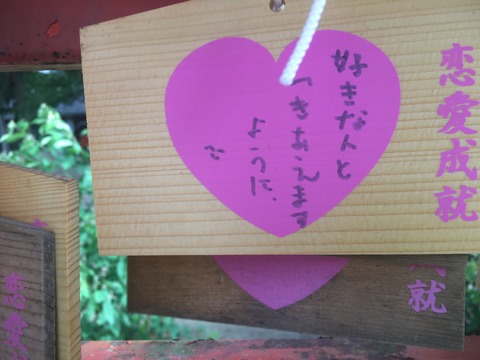 恋愛成就
好きな人と
つきあえます
ように、
就
恋愛